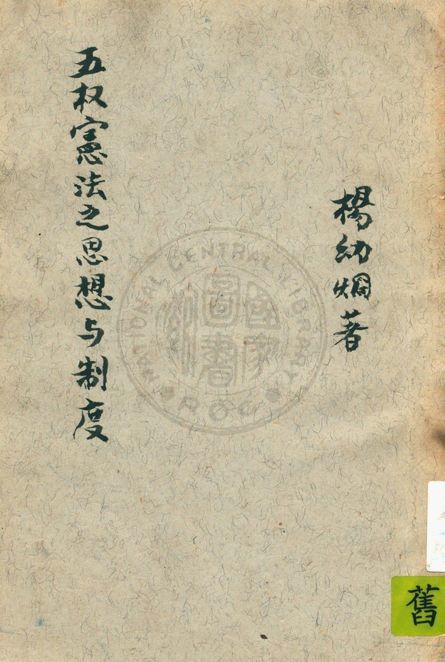 楊幼烱著
五权憲法之思想与制度
NATIONAL CENTRAL LIBRARY
R.O.C.
國家圖書館
舊